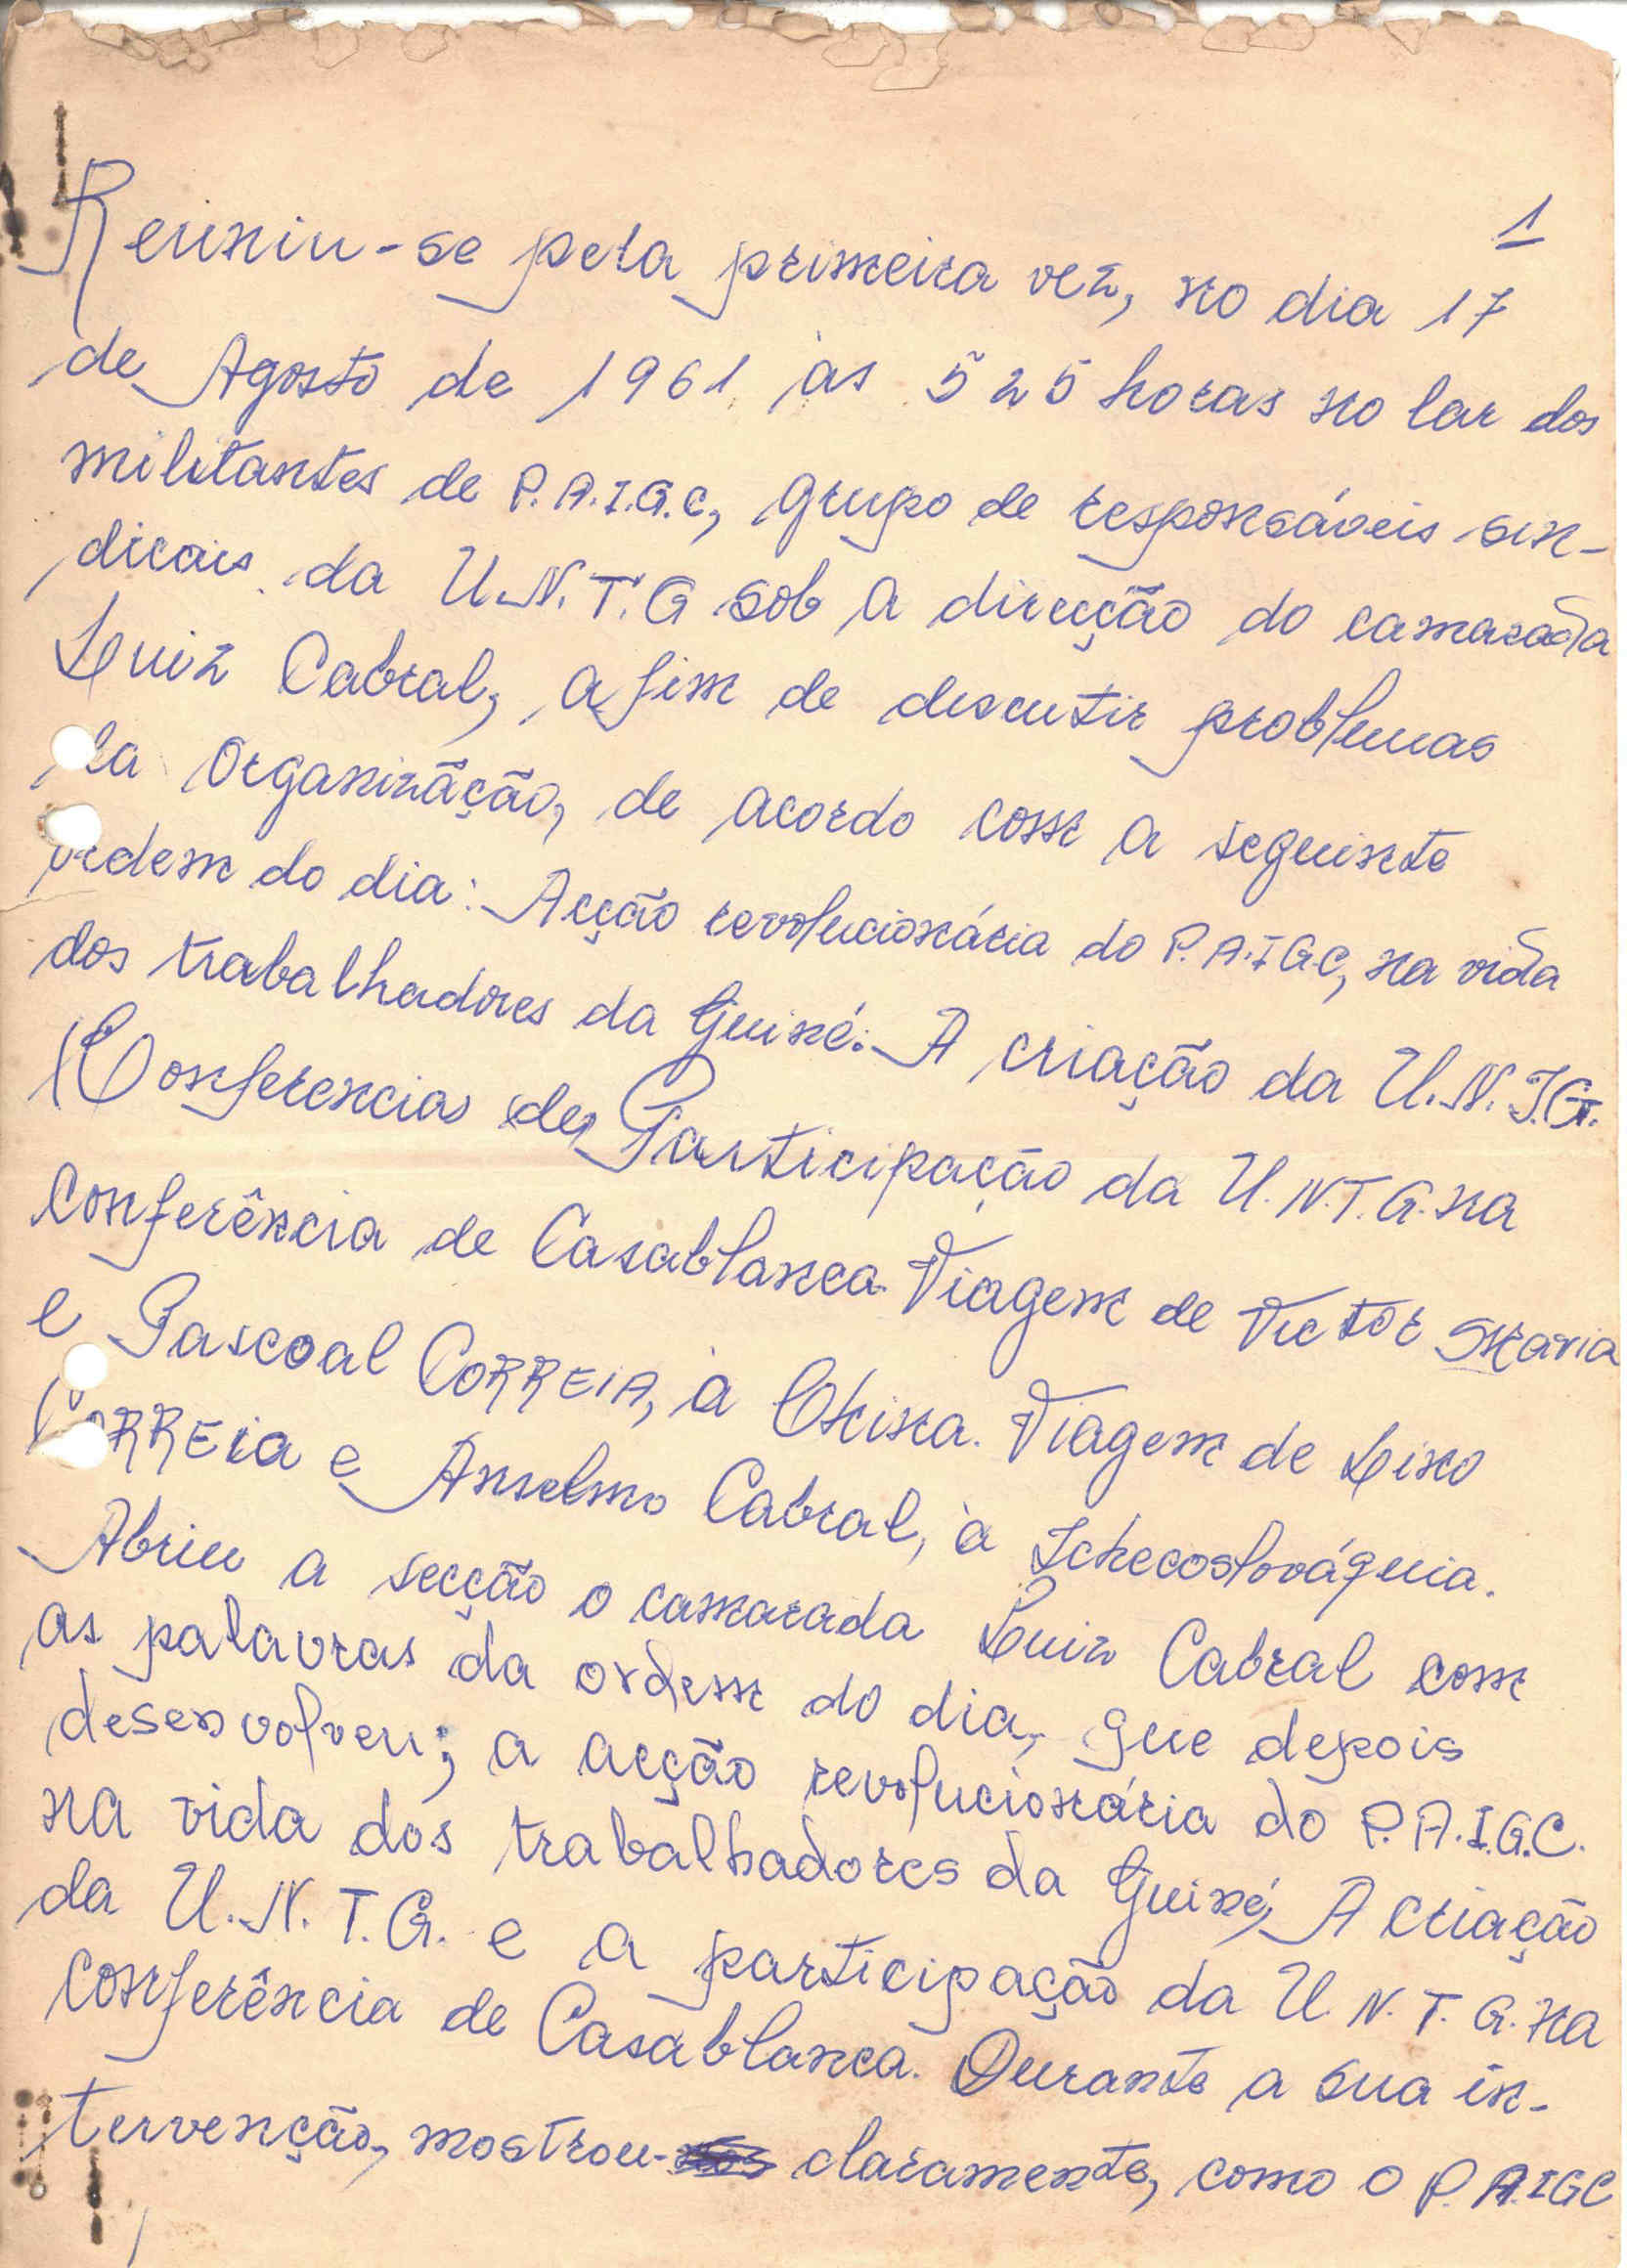 1
Reuniu-se pela primeira vez, no dia 17
de Agosto de 1961 às 525 horas no lar dos
militantes de P.A.I.G.C, grupo de responsáveis sin-
dicais da U.N.T.G sob a direcção do camarada
Luiz Cabral, afim de descutir problemas
da organizãção, de acordo com a seguinte
ordem do dia: Acção revolucionária do P.A.I.G.C, na vida
dos trabalhadores da Guiné. A criação da U.N.T.G.
Conferencias de Participação da U.N.T.G. na
conferência de Casablanca. Viagem de Victor Maria
e Pascoal CORREIA, à China. Viagem de Lino
CORREIA e Anselmo Cabral, à Tchecoslováquia.
Abriu a secção o camarada Luiz Cabral com
as palavras da ordem do dia, que depois
desenvolveu; a acção revolucionária do P.A.I.G.C.
na vida dos trabalhadores da Guiné, A criação
da U.N.T.G. e a participação da U N.T.G. na
conferência de Casablanca. Durante a sua in-
tervenção, mostrou- claramente, como o P.A.IGC